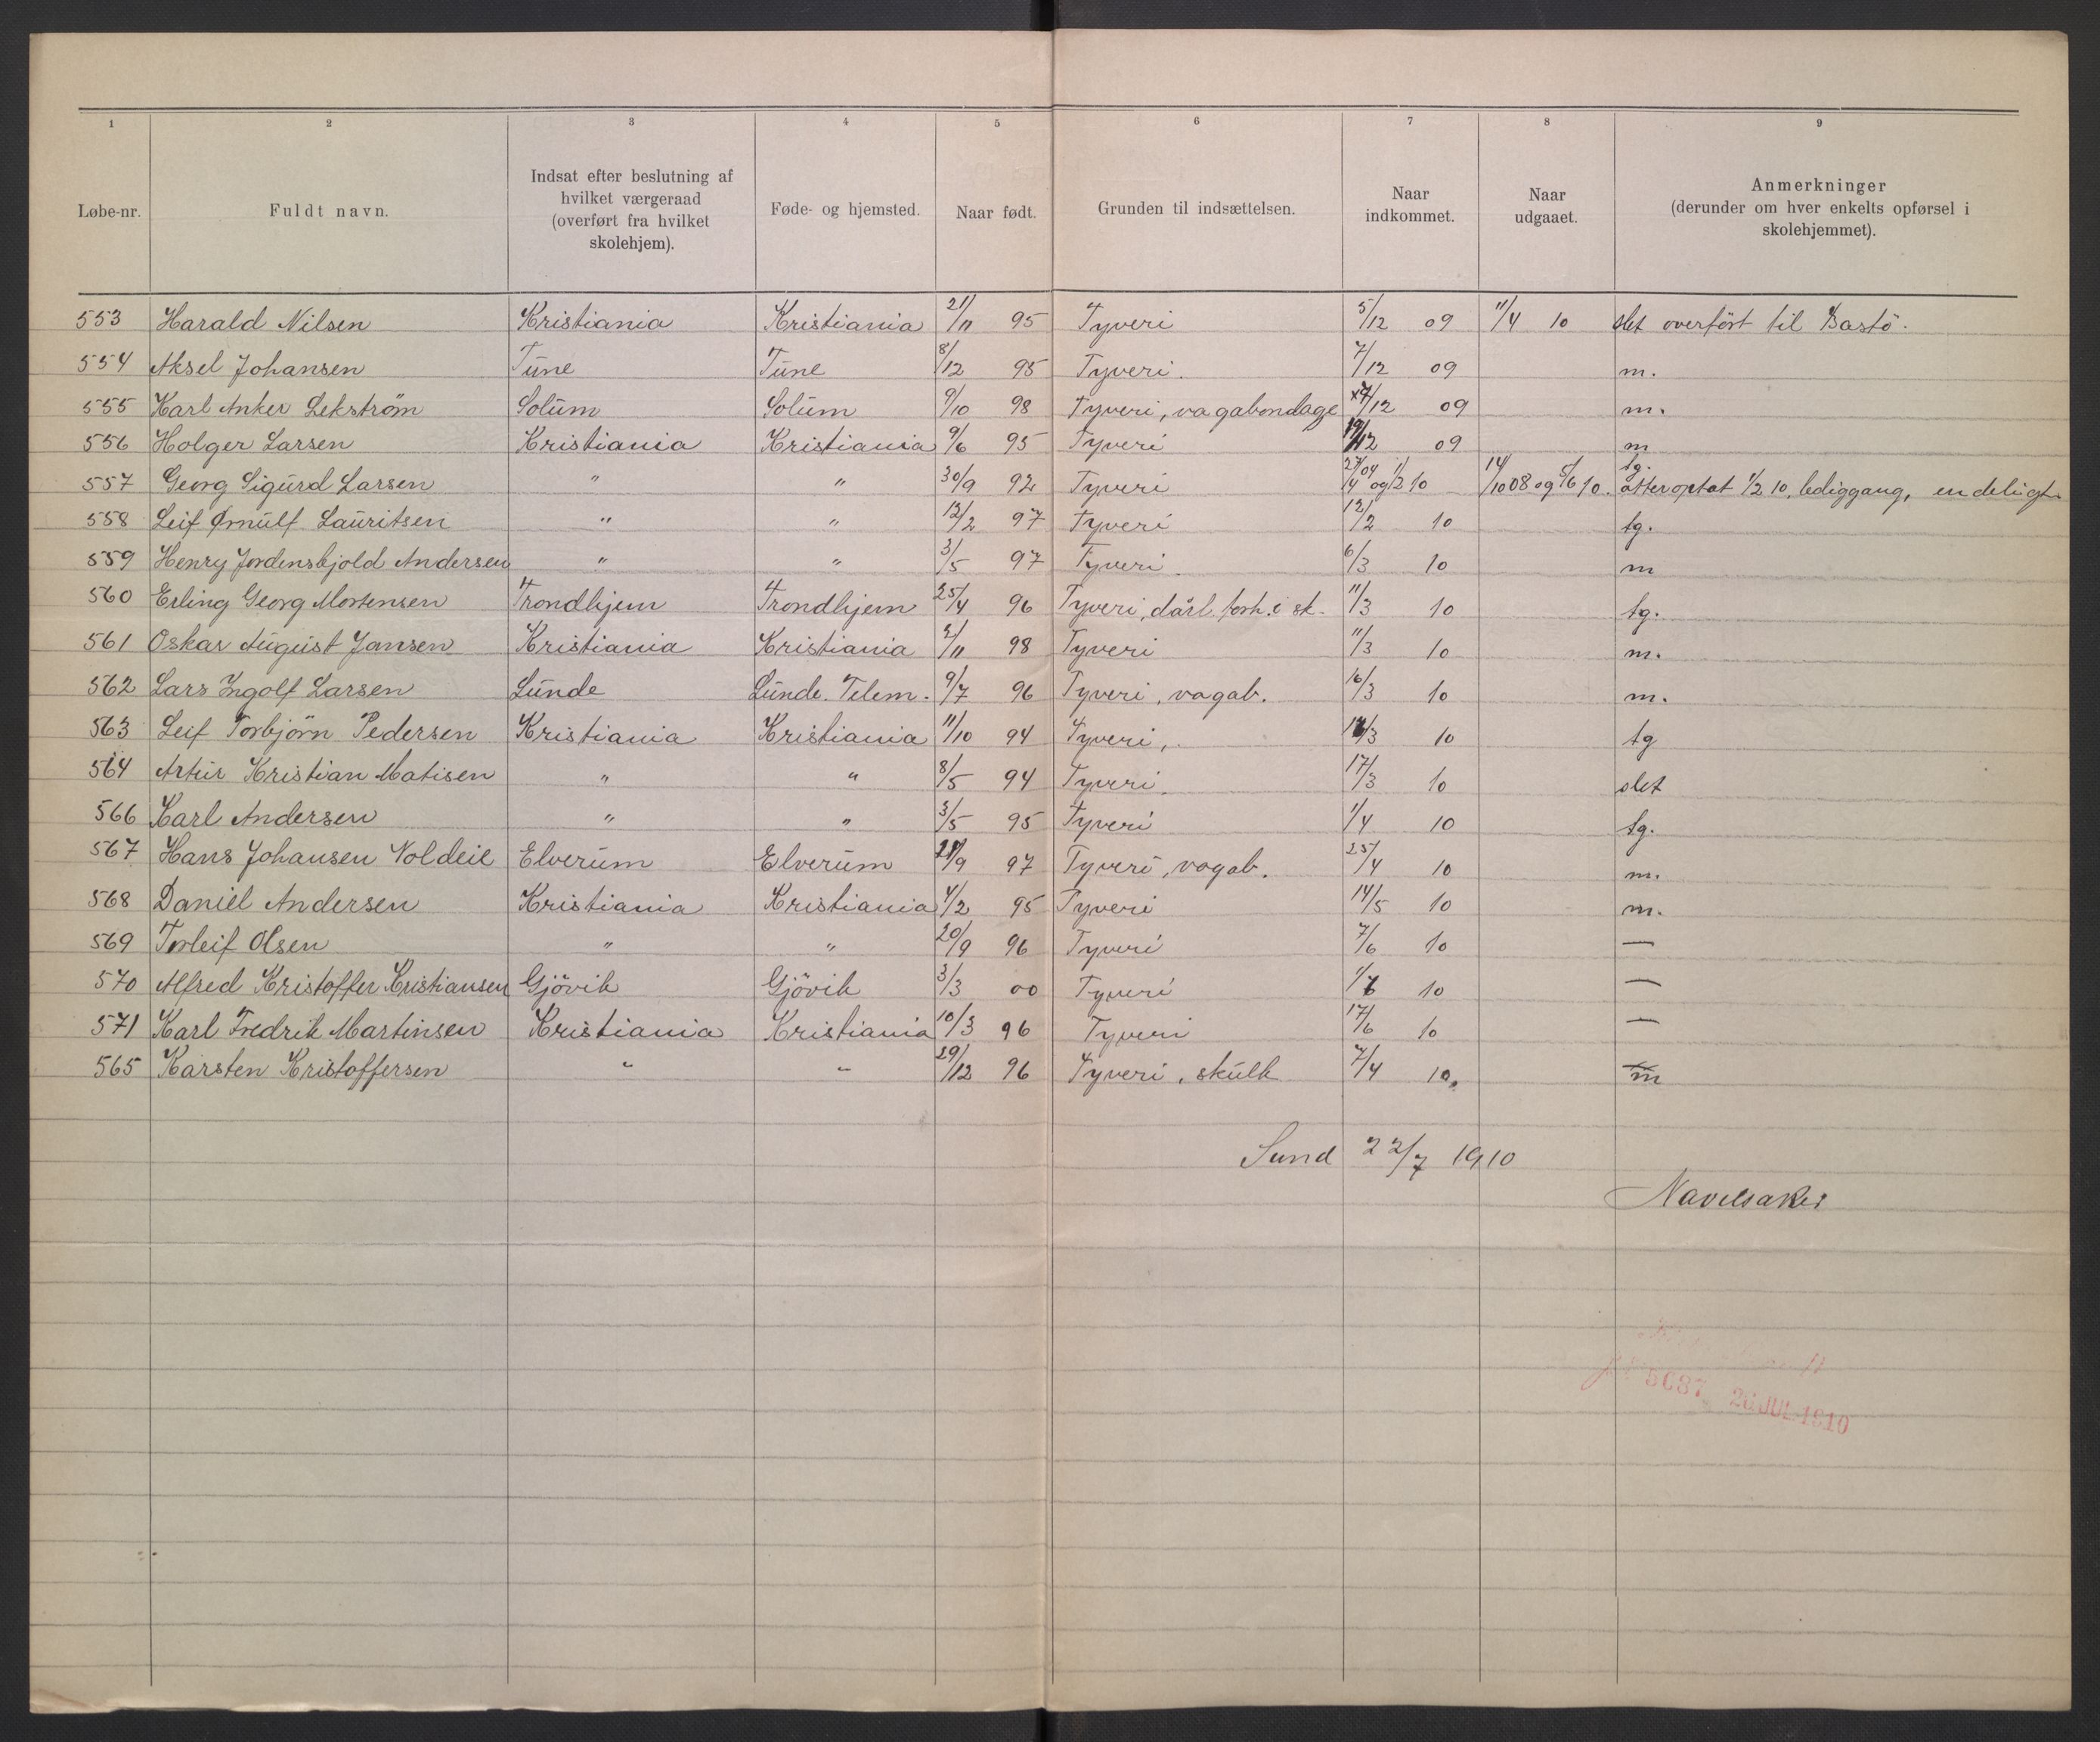 1 2 3 4 5 6 7 8 9
Løbe-nr. Fuldt navn. Indsat efter beslutning af hvilket værgeraad (overført fra hvilket skolehjem). Føde- og hjemsted. Naar født. Grunden til indsættelsen. Naar indkommet. Naar udgaaet. Anmerkninger (derunder om hver enkelts opførsel i skolehjemmet).
553 Harald Nilsen Kristiania Kristiania 21/11 95 Tyveri 5/12 09 11/4 10 slet overført til Bastö.
554 Aksel Johansen Tune Tune 8/12 95 Tyveri. 7/12 09 m.
555 Karl Anker Lekström Solum Solum 9/10 98 Tyveri, vagabondage 17/12 09 m.
556 Holger Larsen Kristiania Kristiania 9/6 95 Tyveri 19/12 09 m
557 Georg Sigurd Larsen " " 30/9 92 Tyveri 27/4 04 og 1/2 10 14/10 08 og 5/6 10. tg. atter optat 1/2 10, lediggang,
558 Leif Ørnulf Lauritsen " " 12/2 97 Tyveri 12/2 10 tg.
559 Henry Jordenskjold Andersen " " 3/5 97 Tyveri. 6/3 10 m
560 Erling Georg Mortensen Trondhjem Trondhjem 25/4 96 Tyveri, dårl. forh. i sk. 11/3 10 tg.
561 Oskar August Jansen Kristiania Kristiania 2/11 98 Tyveri 11/3 10 m.
562 Lars Ingolf Larsen Lunde Lunde. Telem. 9/7 96 Tyveri, vagab. 16/3 10 m.
563 Leif Torbjörn Pedersen Kristiania Kristiania 11/10 94 Tyveri, /3 10 tg
564 Artur Kristian Matisen " " 8/5 94 Tyveri. 17/3 10 slet
566 Karl Andersen " " 3/5 95 Tyveri 1/4 10 tg.
567 Hans Johansen Noldeie Elverum Elverum /9 97 Tyveri, vagab. 25/4 10 m.
568 Daniel Andersen Kristiania Kristiania 4/2 95 Tyveri 14/5 10 m.
569 Torleif Olsen " " 20/9 96 Tyveri 7/6 10 —
570 Alfred Kristoffer Kristiansen Gjövik Gjövik 3/3 00 Tyveri 1/6 10 —
571 Karl Fredrik Martinsen Kristiania Kristiania 10/3 96 Tyveri 17/6 10 —
565 Karsten Kristoffersen " " 29/12 96 Tyveri, skulk 7/4 10. m
Sund 22/7 1910
Navelsaker
26 JUL 1910